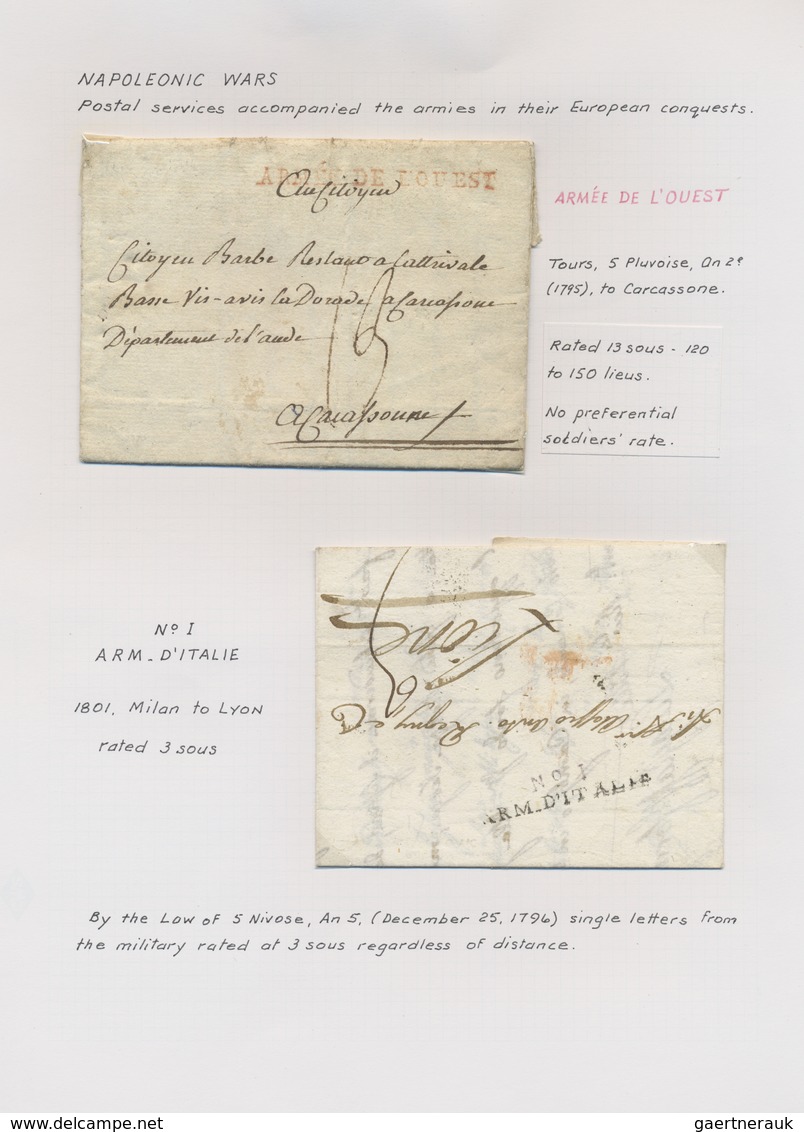 NAPOLEONIC WARS
Postal services accompanied the armies in their European conquests.
ARMÉE DE L'OUEST
Au Citoyen
Citoyen Barbe Restant a Cattrivale
Basse Vis-avis la Dorade a Carcassonne
Département de l'aude
13
A Carcassonne
ARMÉE DE L'OUEST
Tours, 5 Pluvoise, An 2e
(1795), to Carcassone.
Rated 13 sous - 120
to 150 lieus.
No preferential
soldiers' rate.
No I
ARM_D'ITALIE
1801, Milan to Lyon
rated 3 sous
3
Lione
No I
ARM_D'ITALIE
By the Law of 5 Nivose, An 5, (December 25, 1796) single letters from
the military rated at 3 sous regardless of distance.
www.delcampe.net
gaertnerauk